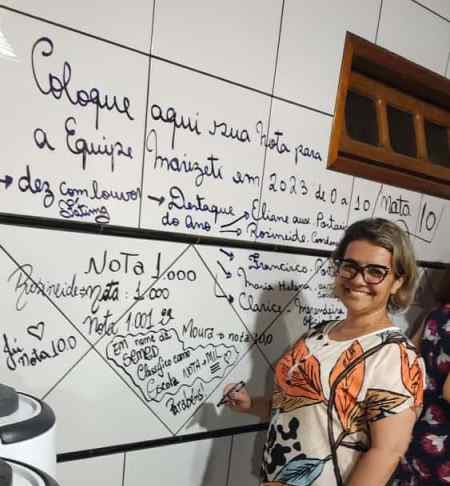 Coloque aqui sua Nota para
a Equipe Marizeti em 2023 de 0 a 10
→ dez com louvor
Fátima
→ Destaque
do Ano
→ Eliane aux Portaria
→ Rosineide.
Nota 10
→ Francisco.
→ Maria Helena
→ Clarice - Merendeira
NOTA 1.000
Rosineide = Nota: 1.000
Nota 1.001
Jai
Nota 10,0
Em nome da
SEMED
Classifico como
Escola NOTA = MIL
Parabéns
Moura = nota 10,0